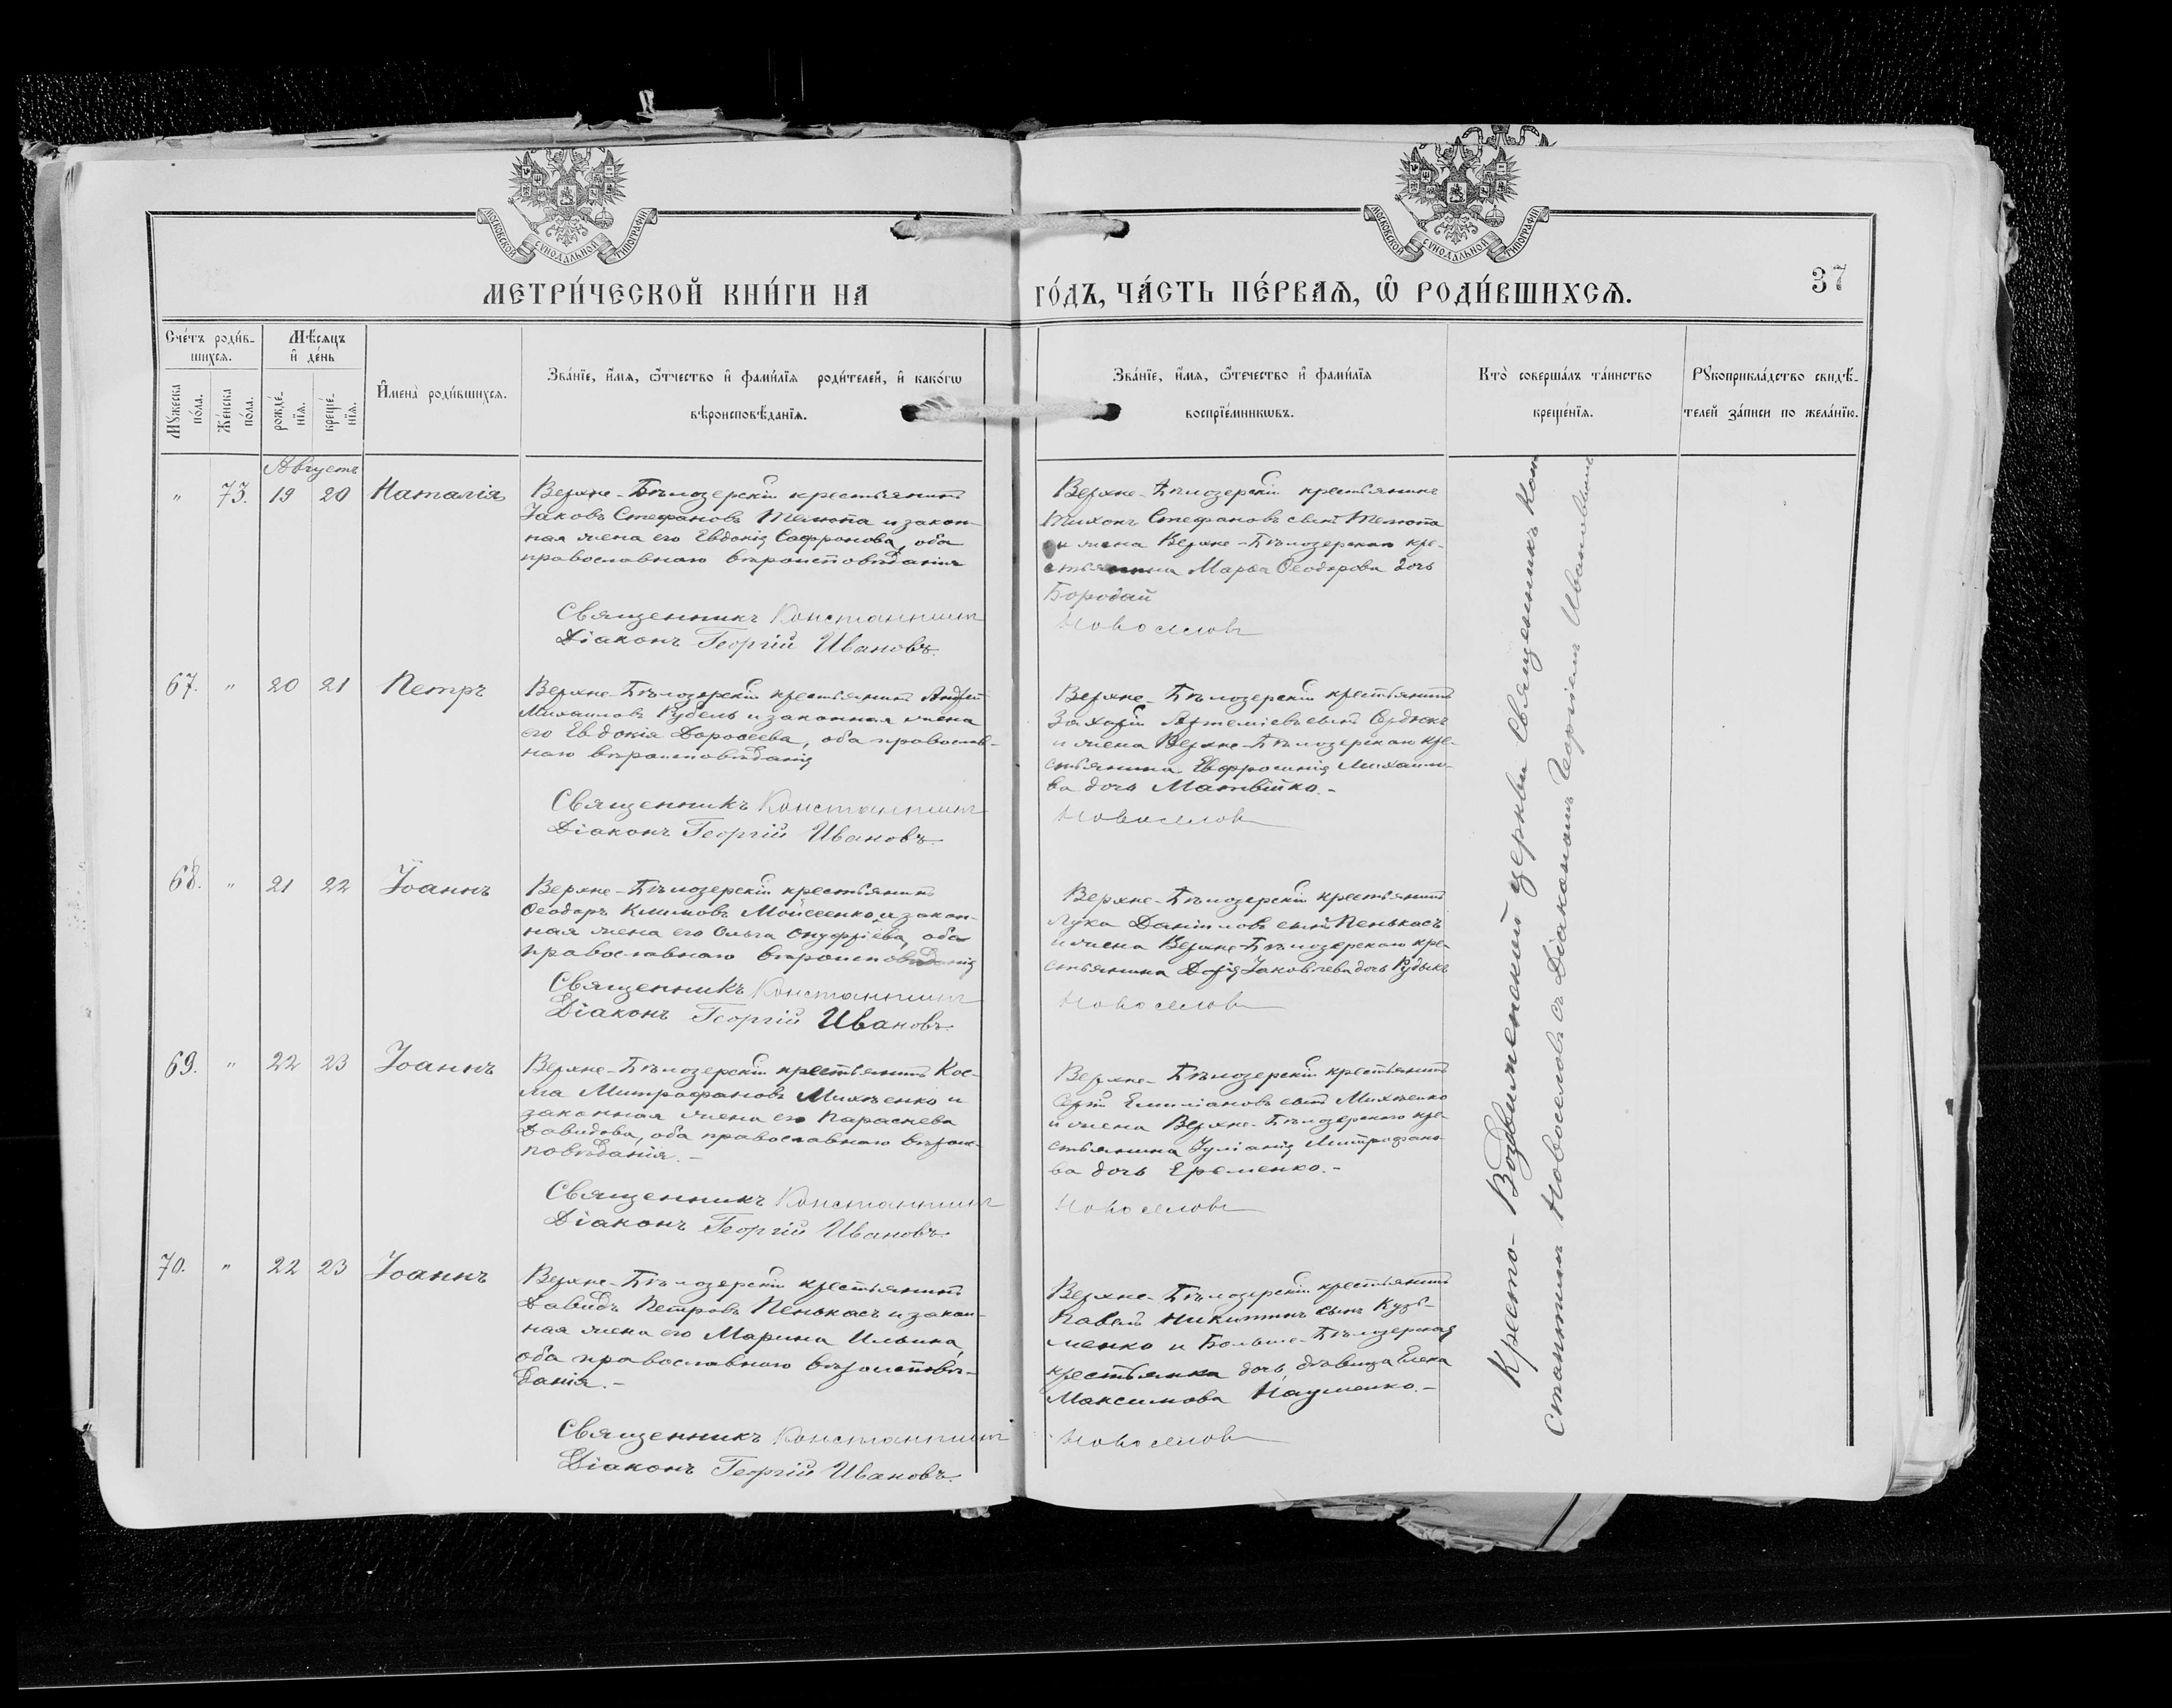 МОСКОВСКОЙ СУНОДАЛЬНОЙ ТИПОГРАФІИ
МОСКОВСКОЙ СУНОДАЛЬНОЙ ТИПОГРАФІИ
МЕТРИ́ЧЕСКОЙ КНИ́ГИ НА
ГО́ДЪ, ЧА́СТЬ ПЕ́РВАѦ, Ѡ РОДИ́ВШИХСѦ.
37
Счéтъ роди́в-
шихсѧ.
Мꙋ́жеска
по́ла.
Же́нска
по́ла.
Мѣ́сѧцъ
и҆ де́нь
рожде́-
нїѧ.
креще́-
нїѧ.
И҆мена̀ роди́вшихсѧ.
Зва́нїе, и҆́мѧ, ѻ҆́тчество и҆ фами́лїѧ роди́телей, и҆ како́гѡ
вѣроисповѣ́данїѧ.
Зва́нїе, и҆́мѧ, ѻ҆́течество и҆ фами́лїѧ
воспрїе́мникѡвъ.
Кто̀ соверша́лъ та́инство
креще́нїѧ.
Рꙋкоприкла́дство свидѣ́-
телей за́писи по жела́нїю.
Августъ
" 73. 19 20 Наталія
Верхне-Бѣлозерскій крестьянинъ
Іаковъ Стефановъ и закон-
ная жена его Евдокія Сафронова, оба
православнаго вѣроисповѣданія
Священникъ Константинъ
Діаконъ Георгій Ивановъ.
Верхне-Бѣлозерскій крестьянинъ
Тихонъ Стефановъ сынъ
и жена Верхне-Бѣлозерскаго кре-
стьянина Марѳа Ѳеодорова дочь
Бородай
Новоселовъ
67. " 20 21 Петръ
Верхне-Бѣлозерскій крестьянинъ Андрей
Михаиловъ Рубель и законная жена
его Евдокія Дороѳеева, оба православ-
наго вѣроисповѣданія
Священникъ Константинъ
Діаконъ Георгій Ивановъ.
Верхне-Бѣлозерскій крестьянинъ
Захарій Артеміевъ сынъ Сердюкъ
и жена Верхне-Бѣлозерскаго кре-
стьянина Евфросинія Михаило-
ва дочь Матвійко.-
Новоселовъ
68. " 21 22 Іоаннъ
Верхне-Бѣлозерскій крестьянинъ
Ѳеодоръ Климовъ Мойсеенко и закон-
ная жена его Ольга Онуфріева, оба
православнаго вѣроисповѣданія
Священникъ Константинъ
Діаконъ Георгій Ивановъ.
Верхне-Бѣлозерскій крестьянинъ
Лука Даніиловъ сынъ Пенькасъ
и жена Верхне-Бѣлозерскаго кре-
стьянина Дарія Іаковлева дочь
Новоселовъ
69. " 22 23 Іоаннъ
Верхне-Бѣлозерскій крестьянинъ Кос-
ма Митрофановъ Михненко и
законная жена его Параскева
Давидова, оба православнаго вѣроис-
повѣданія.-
Священникъ Константинъ
Діаконъ Георгій Ивановъ.
Верхне-Бѣлозерскій крестьянинъ
Сергій Емиліановъ сынъ Михненко
и жена Верхне-Бѣлозерскаго кре-
стьянина Іуліанія Митрофано-
ва дочь Еременко.-
Новоселовъ
70. " 22 23 Іоаннъ
Верхне-Бѣлозерскій крестьянинъ
Давидъ Петровъ Пенькасъ и закон-
ная жена его Марина Ильина,
оба православнаго вѣроисповѣ-
данія.-
Священникъ Константинъ
Діаконъ Георгій Ивановъ.
Верхне-Бѣлозерскій крестьянинъ
Павелъ Никитинъ сынъ Кузь-
менко и Больше-Бѣлозерская
крестьянка дочь, дѣвица Елена
Максимова Науменко.-
Новоселовъ
Кресто-Воздвиженской церкви Священникъ Кон
стантинъ Новоселовъ съ Діакономъ Георгіемъ Ивановымъ